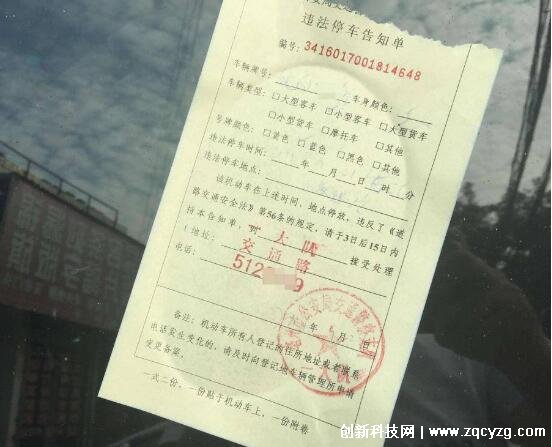 违法停车告知单
编号：3416017001814648
车辆牌号： 车身颜色：
车辆类型：□大型客车 □小型客车 □大型货车
□小型货车 □摩托车 □其他
号牌颜色：□黄色 □蓝色 □黑色 □其他
违法停车时间： 年 月 日 时 分
违法停车地点：
该机动车在上述时间、地点停放，违反了《道
路交通安全法》第56条的规定，请于3日后15日内
持本告知单，到 大队 接受处理
（地址： 交通路
电话： 512 9
年 月 日
备注：机动车所有人登记的住所地址或者联系
电话发生变化的，请及时向登记地车辆管理所申请
变更备案。
一式二份，一份贴于机动车上，一份附卷
创新科技网：www.zqcyzg.com